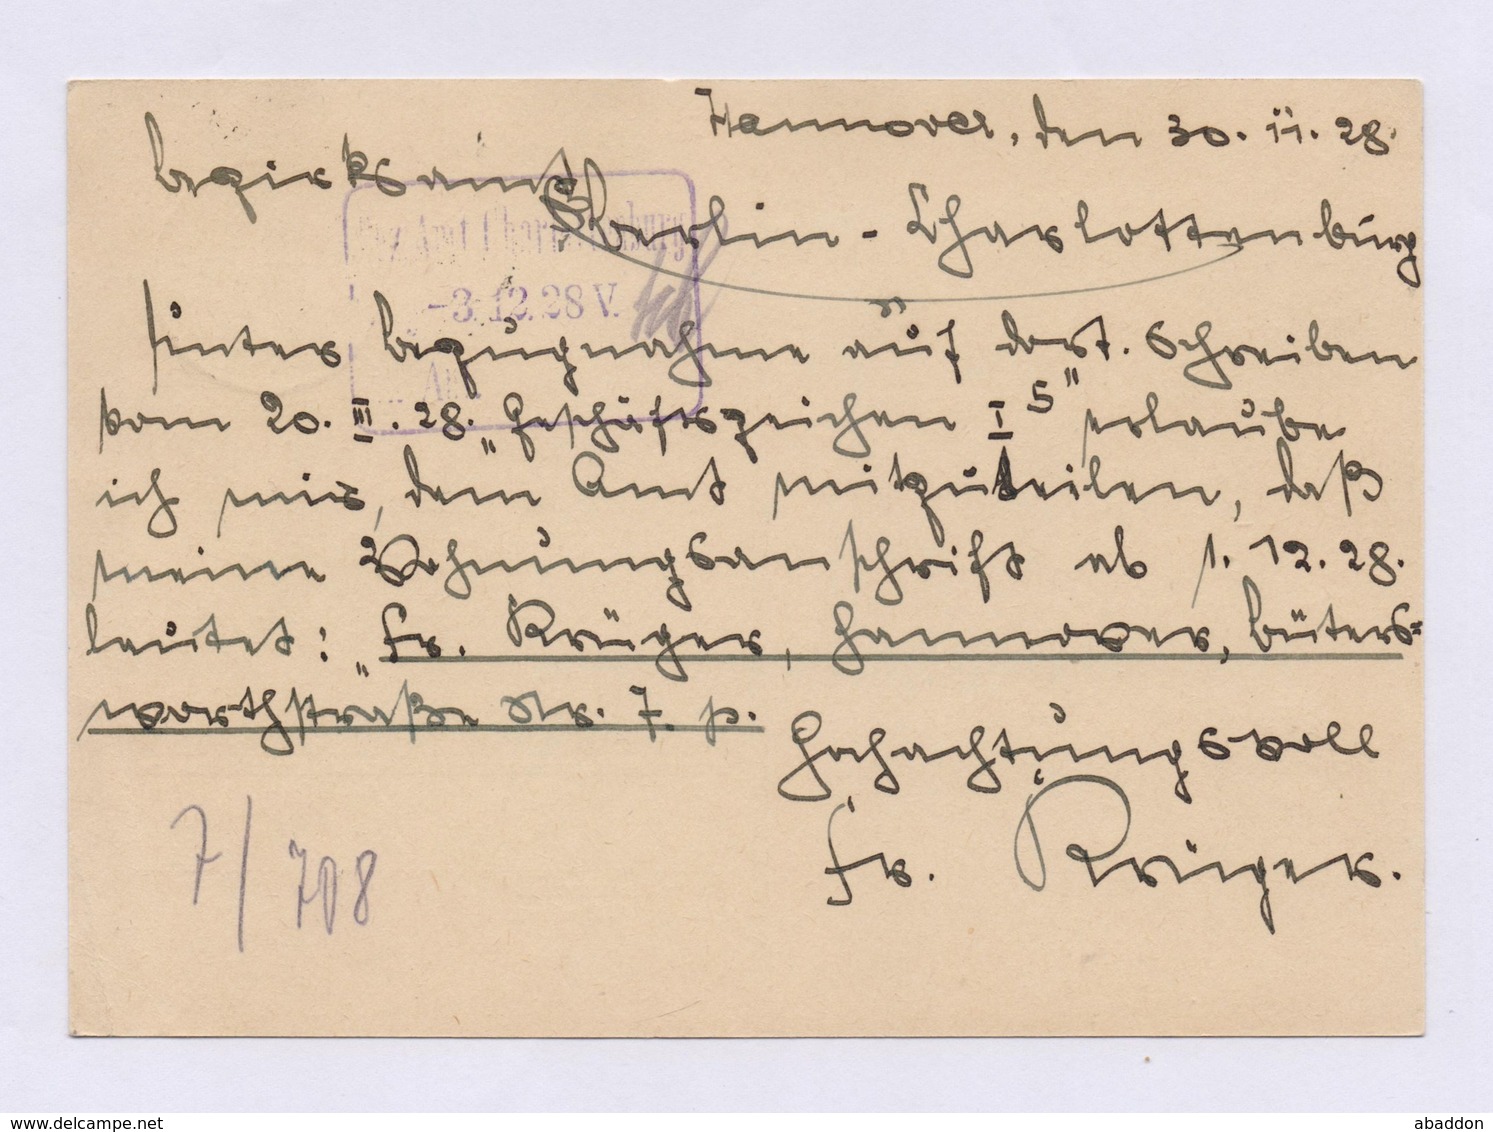 Hannover, den 30. 11. 28.
Bezirksamt
Berlin - Charlottenburg
Bez. Amt Charlottenburg
-3. 12. 28 V.
Unter Bezugnahme auf dort. Schreiben
vom 20. III. 28. „Geschäftszeichen I 5" erlaube
ich mir, dem Amt mitzuteilen, daß
meine Wohnungsanschrift ab 1. 12. 28.
lautet: „Fr. Krüger, Hannover, Büters=
worthstraße Nr. 7. p.
Hochachtungsvoll
Fr. Krüger.
7/708
delcampe.net
abaddon